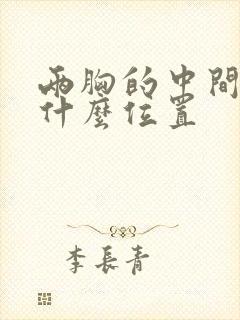 兩胸的中間
什麼位置
李長青